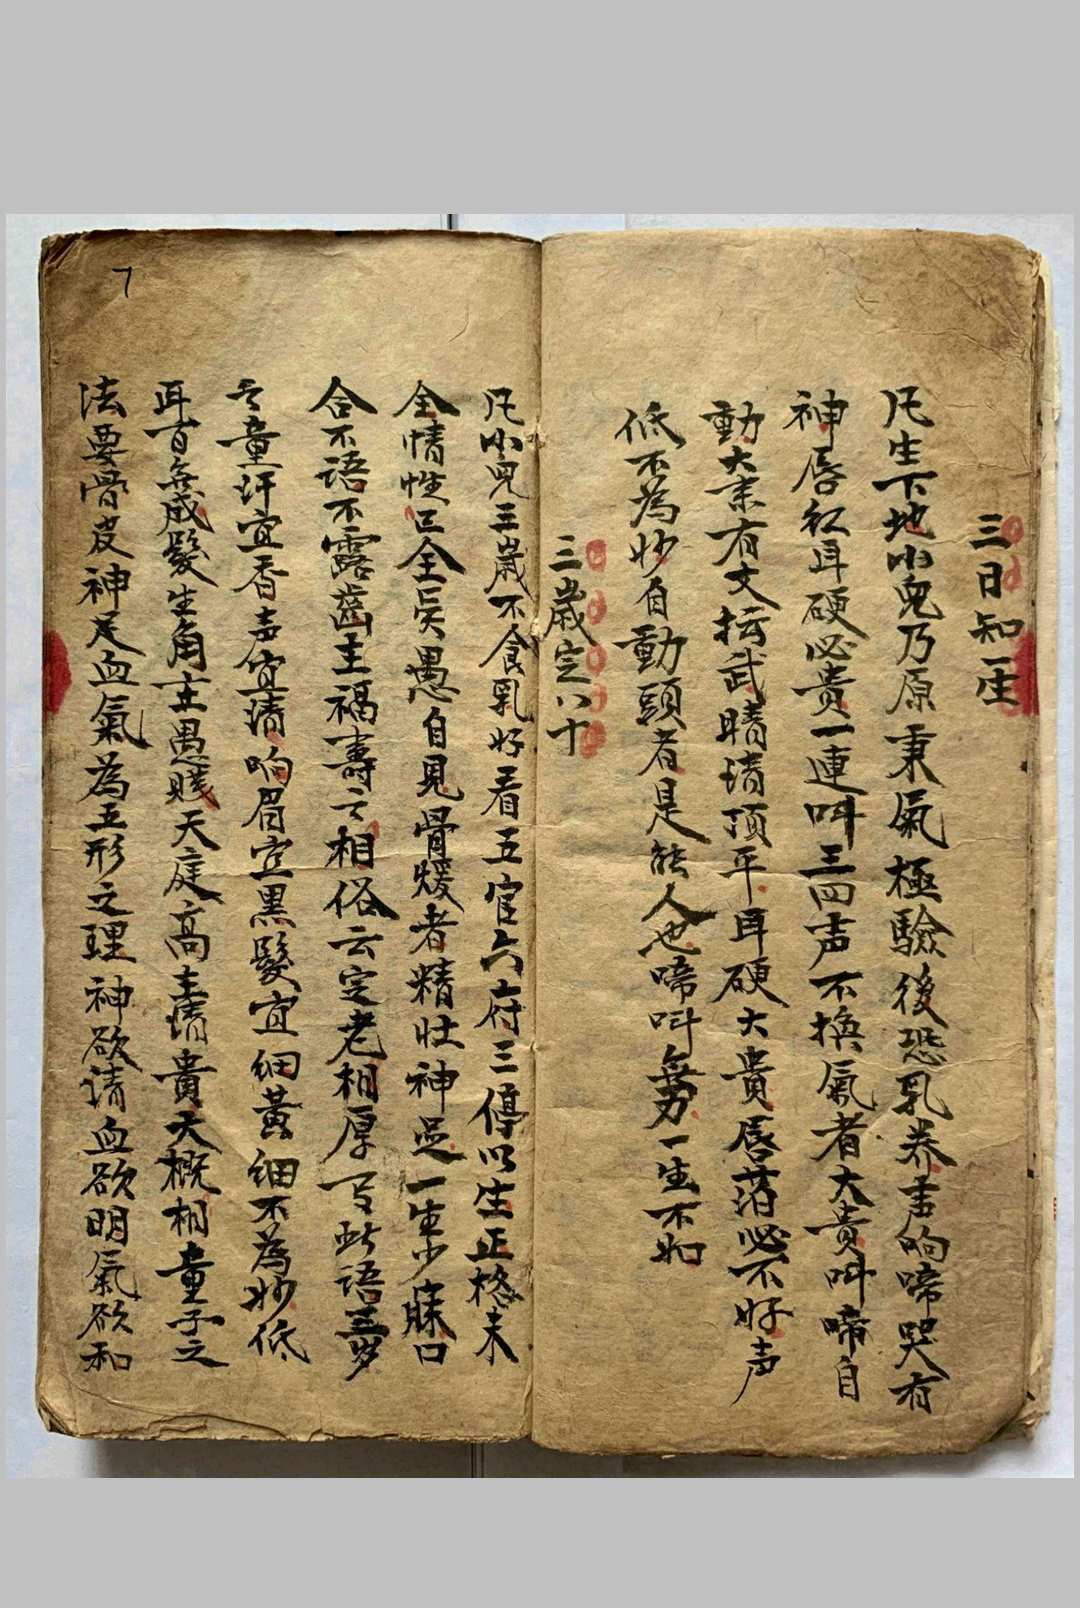 三日知一生
凡生下地小兒乃原秉氣極驗後恐乳养声响啼哭有
神唇红耳硬必贵一連叫三四声不换氣者大貴叫啼自
動大業有文坛武睛清顶平耳硬大貴唇薄必不好声
低不為妙自動頭者是能人也啼叫無力一生不如
三歲定八十
凡小兒三歲不食乳好看五官六府三停以生正格未
全情性已全矣愚自見骨煖者精壮神足一生少寐口
合不語不露齒主福壽之相俗云定老相厚此語三岁
之童汗宜香声宜清响眉宜黑髮宜細黄細不為妙低
耳百無成髮生角主愚賤天庭高主清貴大概相童子之
法要骨皮神足血氣為五形之理神欲清血欲明氣欲和
7